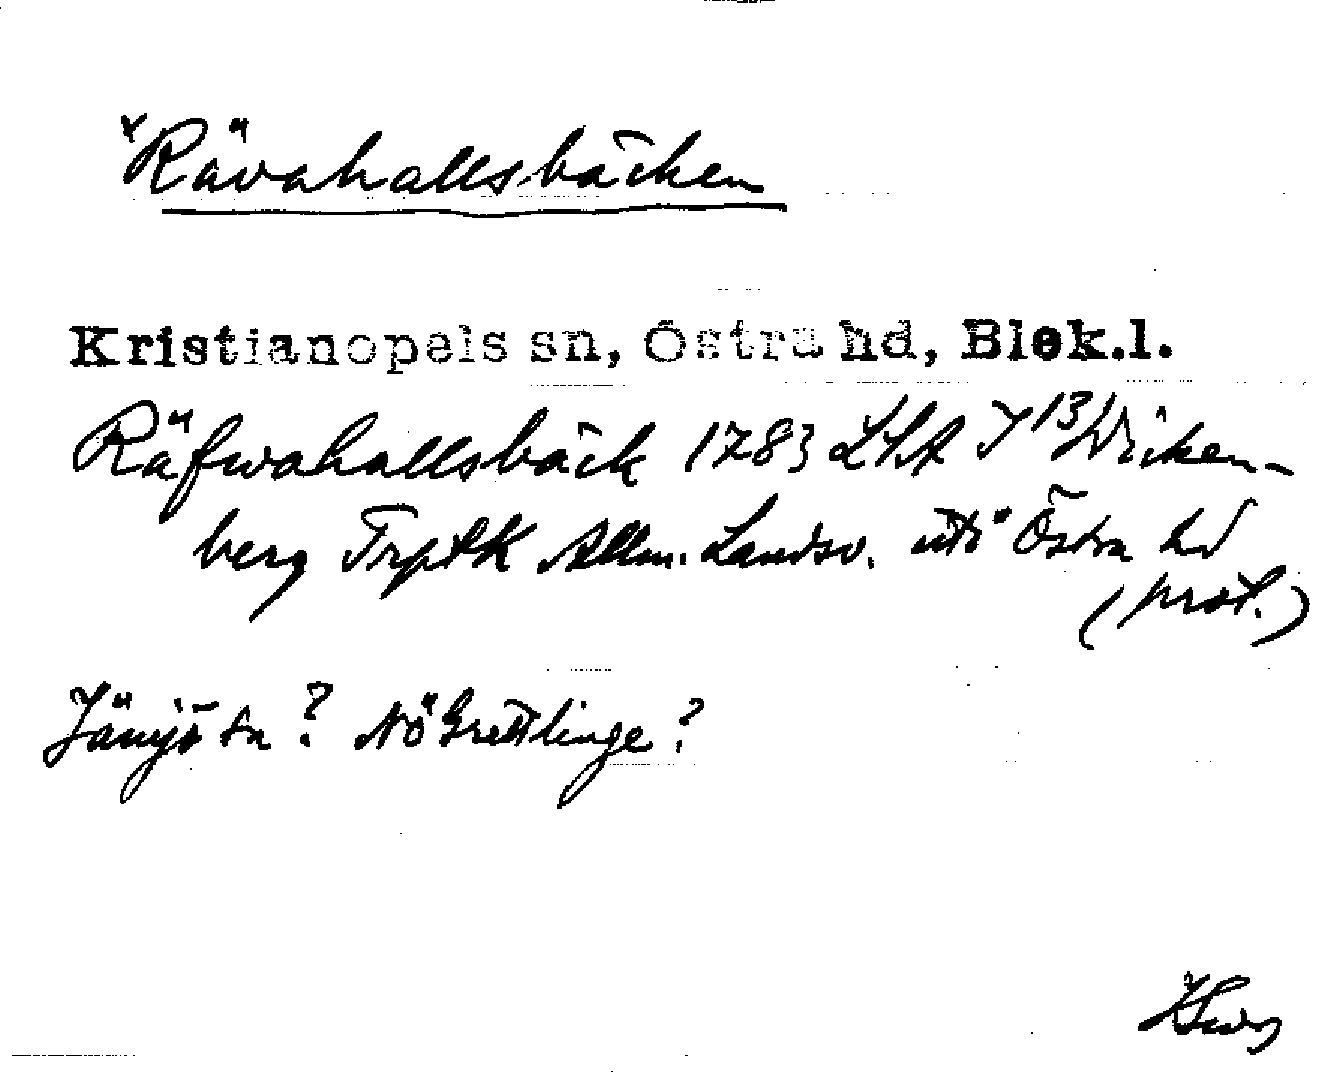 ˣRävahallsbäcken
Kristianopels sn, Östra hd, Blek.l.
Räfwahallsbäck 1783 LSA I 13 Wicken-
berg Trptk Allm. Landsv. uti Östra hd
(prot.)
Jämjö sn? NÖ Grettlinge?